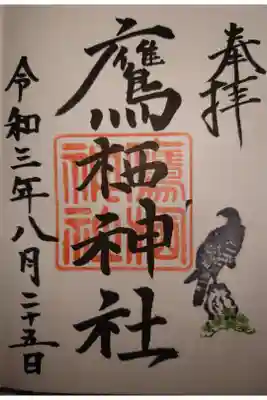 奉拝
鷹栖神社
令和三年八月二十五日